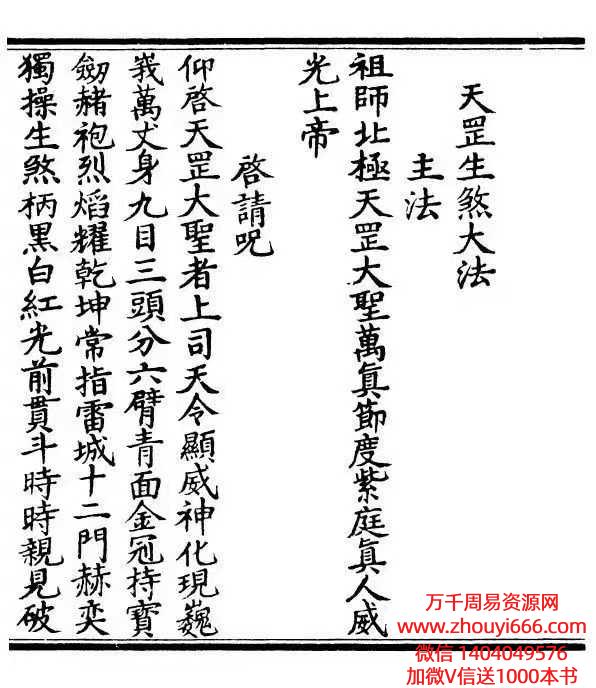 天罡生煞大法
主法
祖師北極天罡大聖萬眞節度紫庭眞人威
光上帝
啓請呪
仰啓天罡大聖者上司天令顯威神化現巍
峩萬丈身九目三頭分六臂青面金冠持寶
劒赭袍烈熖耀乾坤常指雷城十二門赫奕
獨操生煞柄黑白紅光前貫斗時時親見破
万千周易资源网
www.zhouyi666.com
微信 1404049576
加微V信送1000本书